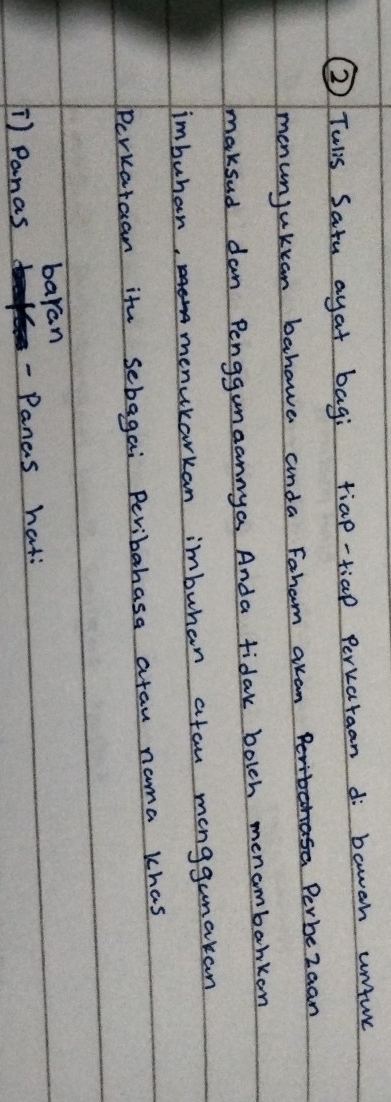 ② Tulis satu ayat bagi tiap-tiap Perkataan di bawah untuk
menunjukkan bahawa anda Faham akan Peribahasa Perbezaan
maksud dan Penggunaannya Anda tidak boleh menambahkan
imbuhan, menukarkan imbuhan atau menggunakan
Perkataan itu sebagai Peribahasa atau nama khas
i) Panas baran - Panas hati